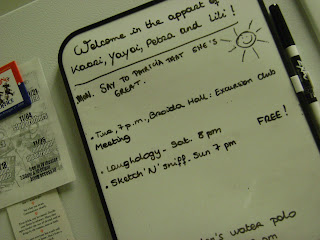 Welcome in the appart of
Kaori, Yayoi, Petra and Lili!
MAN. SAY TO PATRICIA THAT SHE'S
GREAT.
• Tue, 7 p.m., Hall: Excursion Club
Meeting
FREE!
• Laughology - Sat. 8 pm
• Sketch 'N' Sniff. Sun 7 pm
water polo